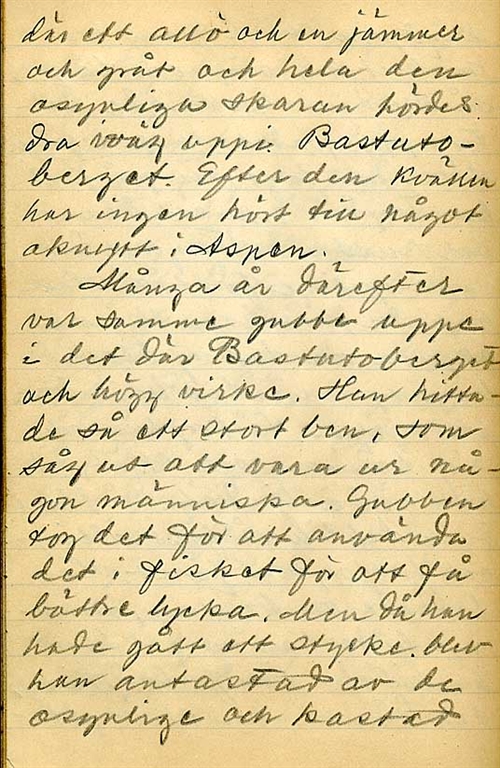 där ett allò och en jämmer
och gråt och hela den
osynliga skaran hördes
dra iväg uppi Bastuto-
berget. Efter den kvällen
har ingen hört till något
oknytt i Aspen.
Många år därefter
var samme gubbe uppe
i det där Bastutoberget
och högg virke. Han hitta-
de så ett stort ben, som
såg ut att vara ur nå-
gon människa. Gubben
tog det för att använda
det i fisket för att få
bättre lycka. Men då han
hade gått ett stycke blev
han antastad av de
osynlige och kastad